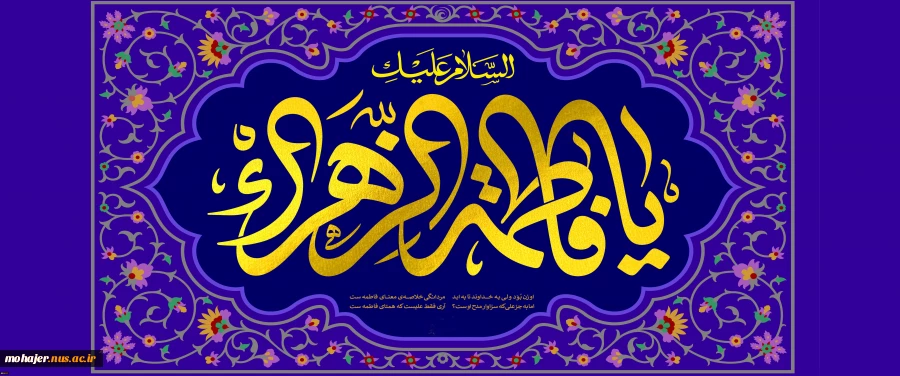 السَّلامُ عَلَيْكِ
يا فاطمة الزهراء
او زن بُوَد ولی به خداوند تا به ابد مردانگی خلاصه‌ی معنای فاطمه ست
اما به جز علی که سزاوار مدح اوست؟ آری فقط علیست که همتای فاطمه ست
mohajer.nus.ac.ir